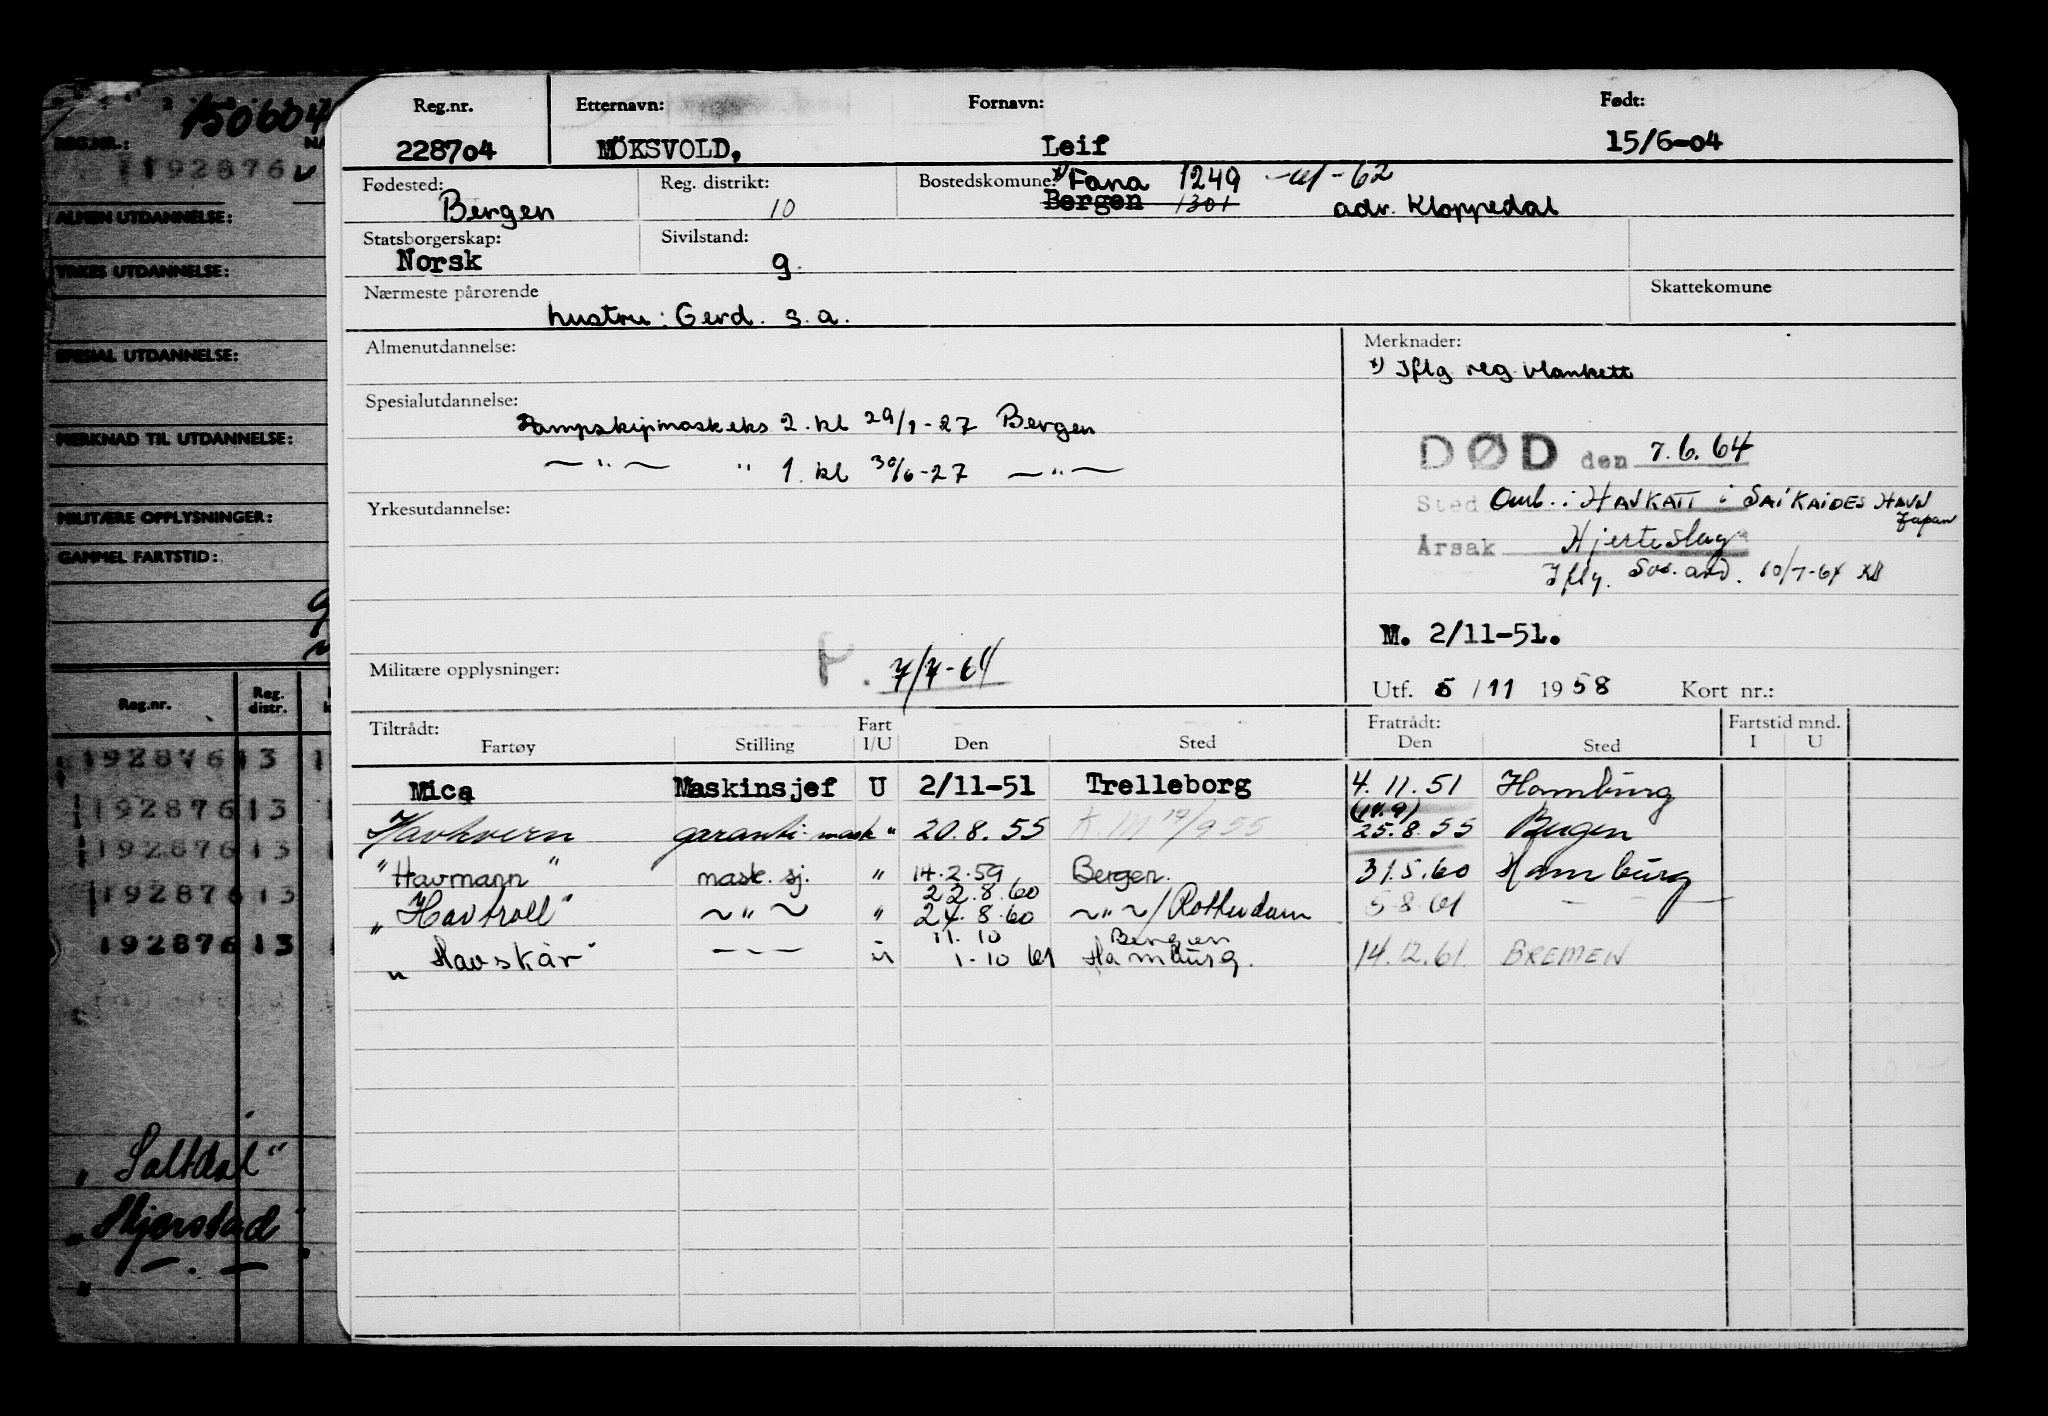 150604
REG.NR.: NA
192876
ALMEN UTDANNELSE:
YRKES UTDANNELSE:
SPESIAL UTDANNELSE:
MERKNAD TIL UTDANNELSE:
MILITÆRE OPPLYSNINGER:
GAMMEL FARTSTID:
Reg.nr. Reg. distr.
192876 13 1
192876 13
192876 13
192876 13
192876 13
"Saltdal"
"Hjerstad"
— " —
Reg.nr. Etternavn: Fornavn: Født:
228704 MÖKSVOLD, Leif 15/6-04
Fødested: Reg. distrikt: Bostedskommune: x) Fana 1249 -61-62
Bergen 10 Bergen 1301 adr. Kloppedal
Statsborgerskap: Sivilstand:
Norsk g.
Nærmeste pårørende Skattekomune
hustru: Gerd. s.a.
Almenutdannelse: Merknader:
x) Iflg reg. blankett
Spesialutdannelse:
Dampskipmaskeks 2. kl 29/1-27 Bergen
— " — " 1. kl 30/6-27 — " —
DØD den 7.6.64
Sted Omb. i HAVKATT i SAIKAIDES HAVN Japan
Yrkesutdannelse:
Årsak Hjerteslag
Iflg. Sos. avd. 10/7-64
M. 2/11-51.
Militære opplysninger: F. 7/7-64
Utf. 5/11 1958 Kort nr.:
Tiltrådt: Fart Fratrådt: Fartstid mnd.
Fartøy Stilling I/U Den Sted Den Sted I U
Mica Maskinsjef U 2/11-51 Trelleborg 4.11.51 Hamburg
Havkvern garanti-mask " 20.8.55 KM 14/9 55 (14.9) 25.8.55 Bergen
"Havmann" mask. sj. " 14.2.59 Bergen. 31.5.60 Hamburg
"Havtroll" ~ " ~ " 22.8.60 24.8.60 ~ " ~ / Rotterdam 5.8.61 — —
"Havskår" - - - " 11.10 1-10 61 Bergen Hamburg. 14.12.61. BREMEN